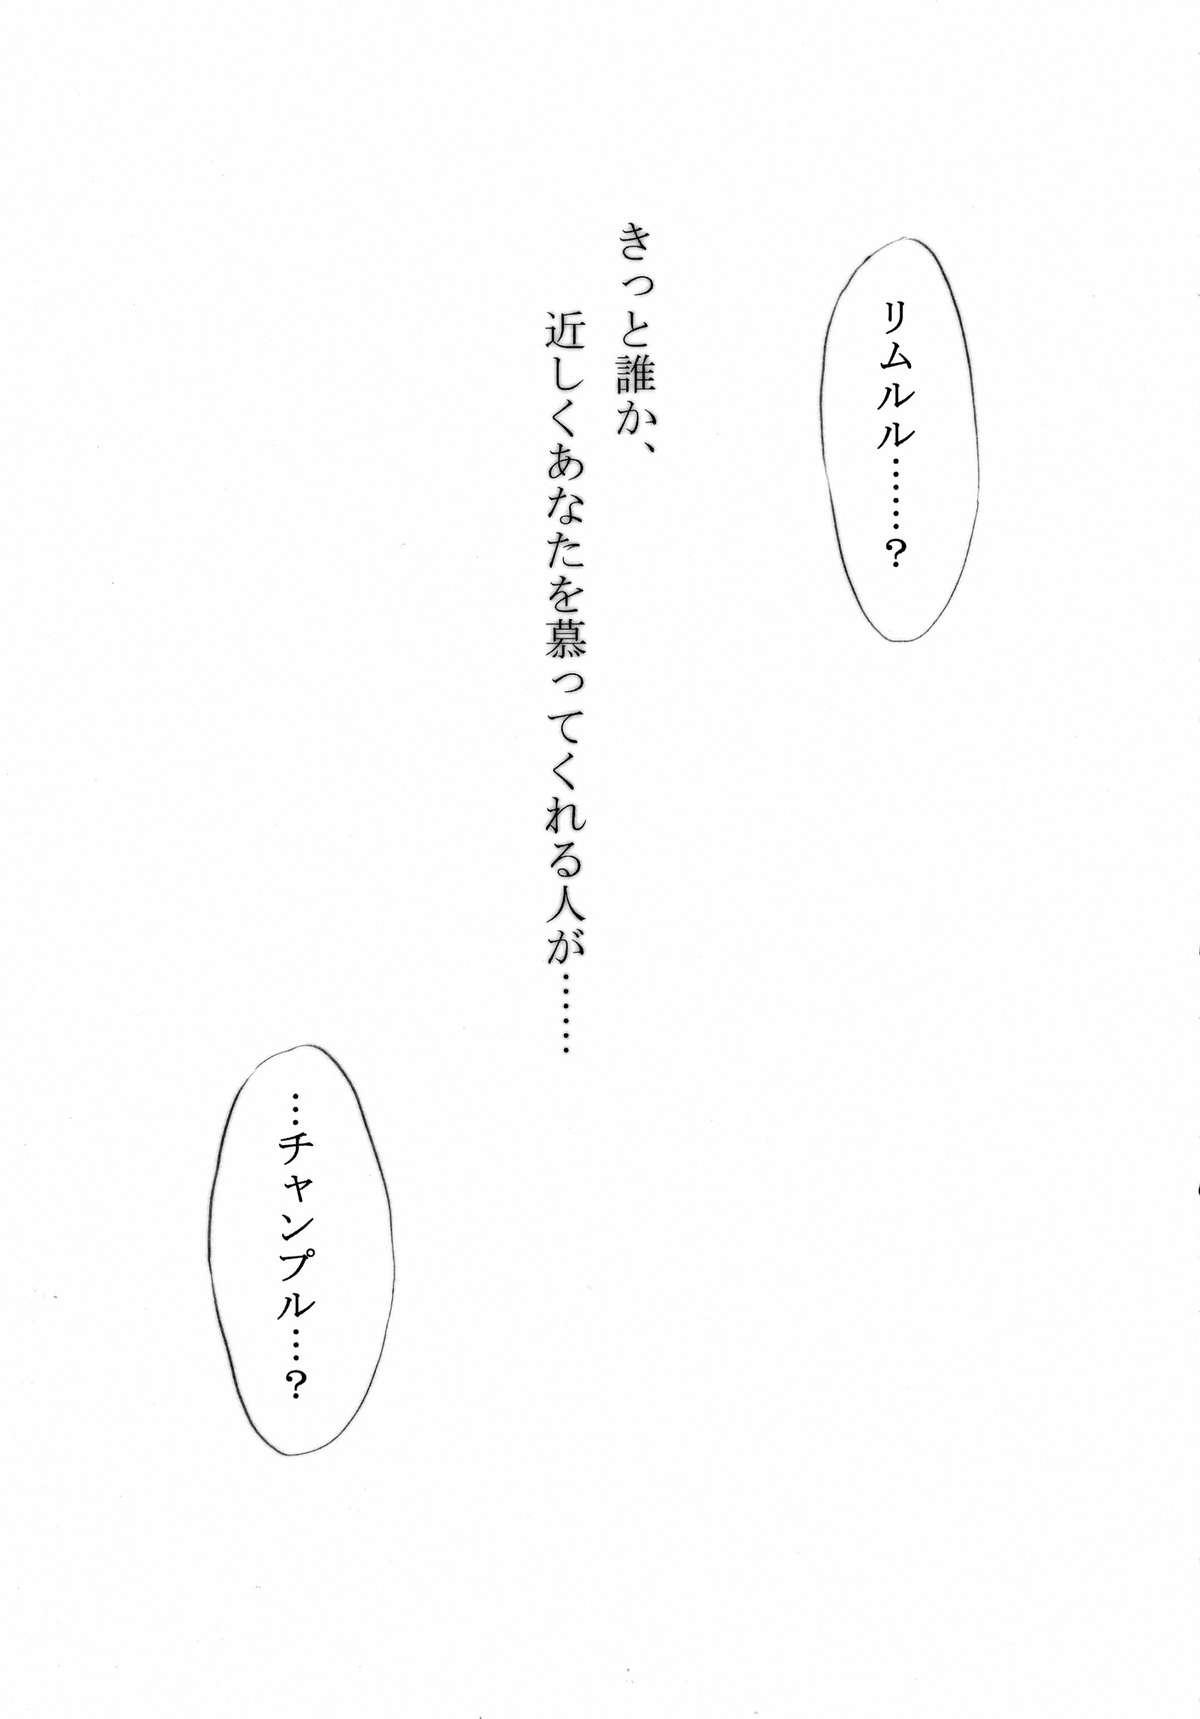 リムルル………?
きっと誰か、
近しくあなたを慕ってくれる人が……
…チャンプル…?